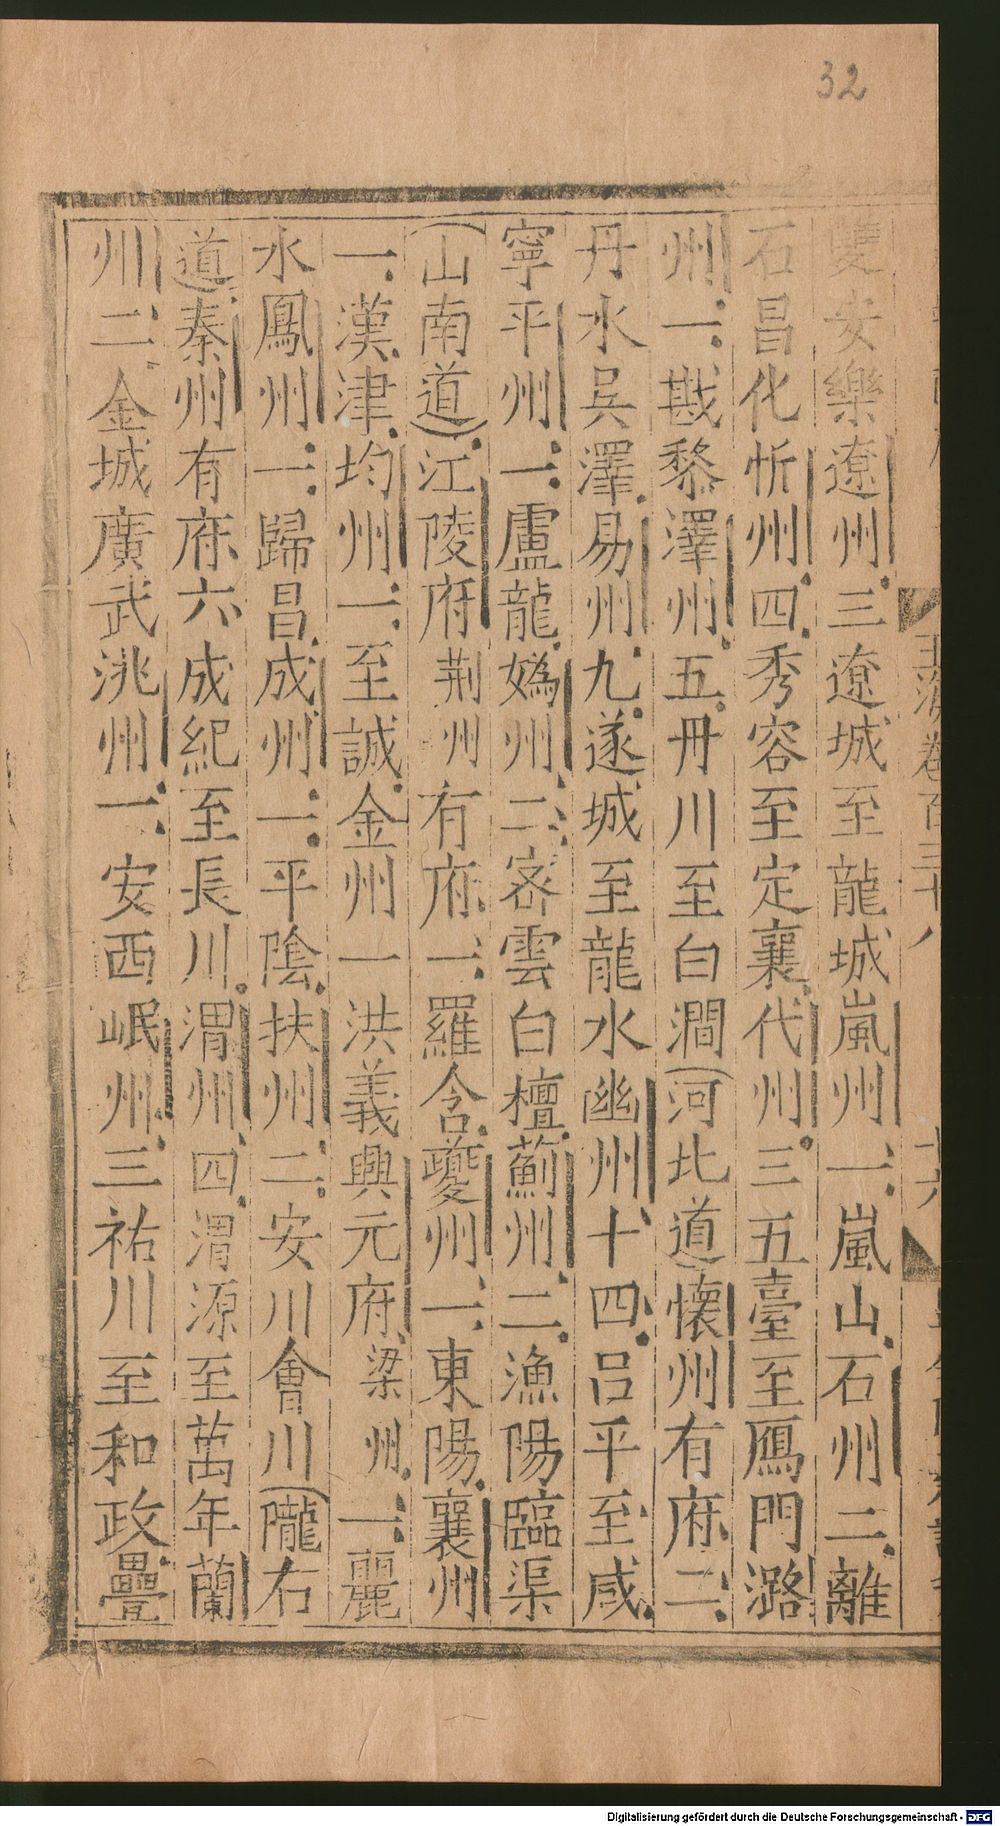 32
玉海卷百三十八
十六
雙安樂遼州三遼城至龍城嵐州一嵐山石州二離
石昌化忻州四秀容至定襄代州三五臺至鴈門潞
州一戡黎澤州五丹川至白澗(河北道懷州有府二
丹水吳澤易州九遂城至龍水幽州十四吕平至咸
寧平州一盧龍媯州二密雲白檀薊州二漁陽臨渠
(山南道)江陵府荆州有府一羅含夔州一東陽襄州
一漢津均州一至誠金州一洪義興元府梁州一麗
水鳳州一歸昌成州一平陰扶州二安川會川(隴右
道秦州有府六成紀至長川渭州四渭源至萬年蘭
州二金城廣武洮州一安西岷州三祐川至和政疊
Digitalisierung gefördert durch die Deutsche Forschungsgemeinschaft - DFG